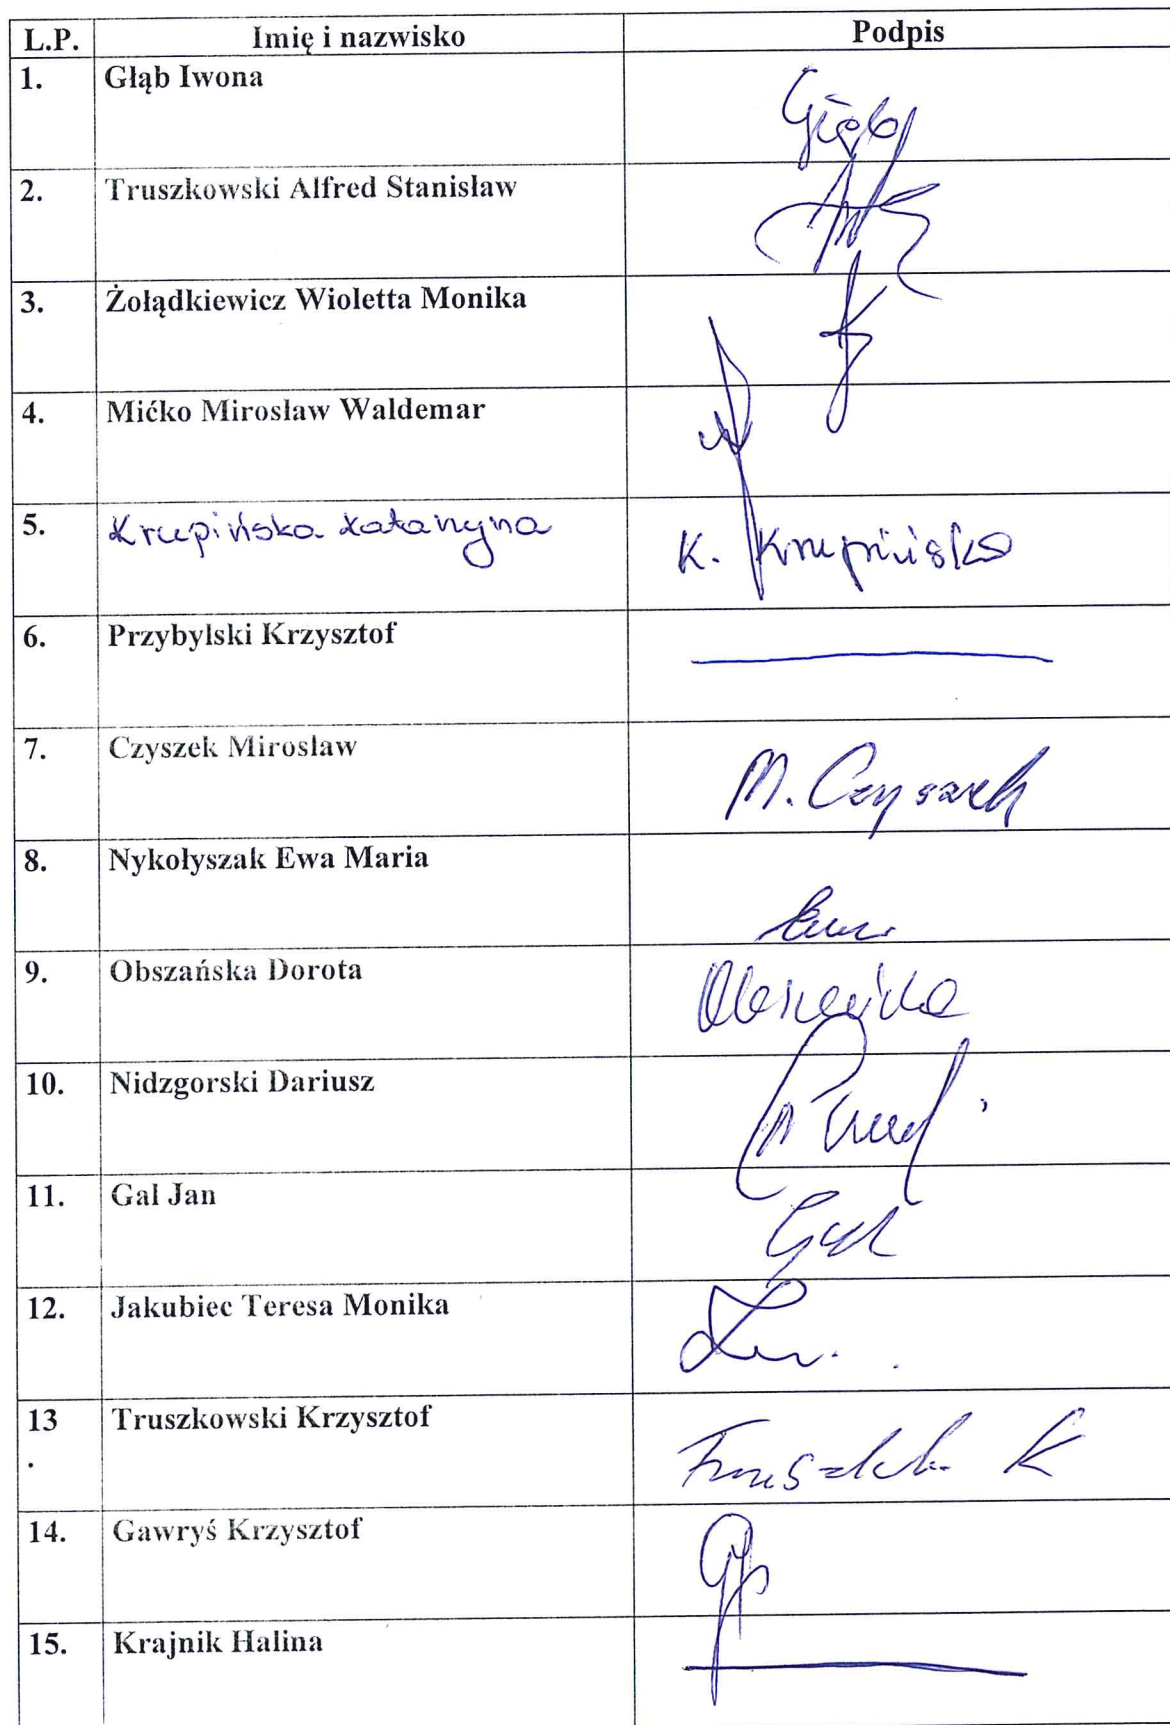 L.P. Imię i nazwisko Podpis
1. Głąb Iwona Głąb
2. Truszkowski Alfred Stanisław
3. Żołądkiewicz Wioletta Monika
4. Mićko Mirosław Waldemar
5. Krupińska Katarzyna K. Krupińska
6. Przybylski Krzysztof
7. Czyszek Mirosław M. Czyszek
8. Nykołyszak Ewa Maria
9. Obszańska Dorota Obszańska
10. Nidzgorski Dariusz
11. Gal Jan Gal
12. Jakubiec Teresa Monika
13 Truszkowski Krzysztof
.
14. Gawryś Krzysztof
15. Krajnik Halina